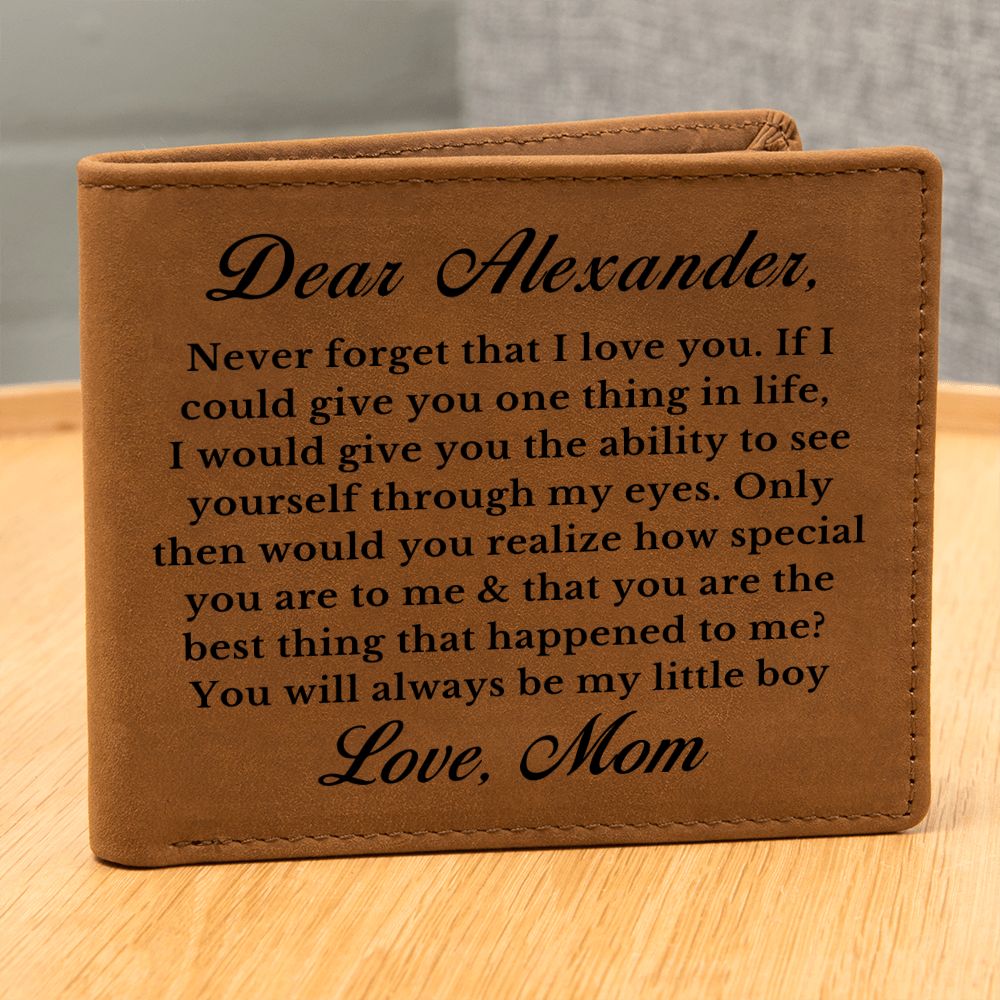 Dear Alexander,
Never forget that I love you. If I
could give you one thing in life,
I would give you the ability to see
yourself through my eyes. Only
then would you realize how special
you are to me & that you are the
best thing that happened to me?
You will always be my little boy
Love, Mom